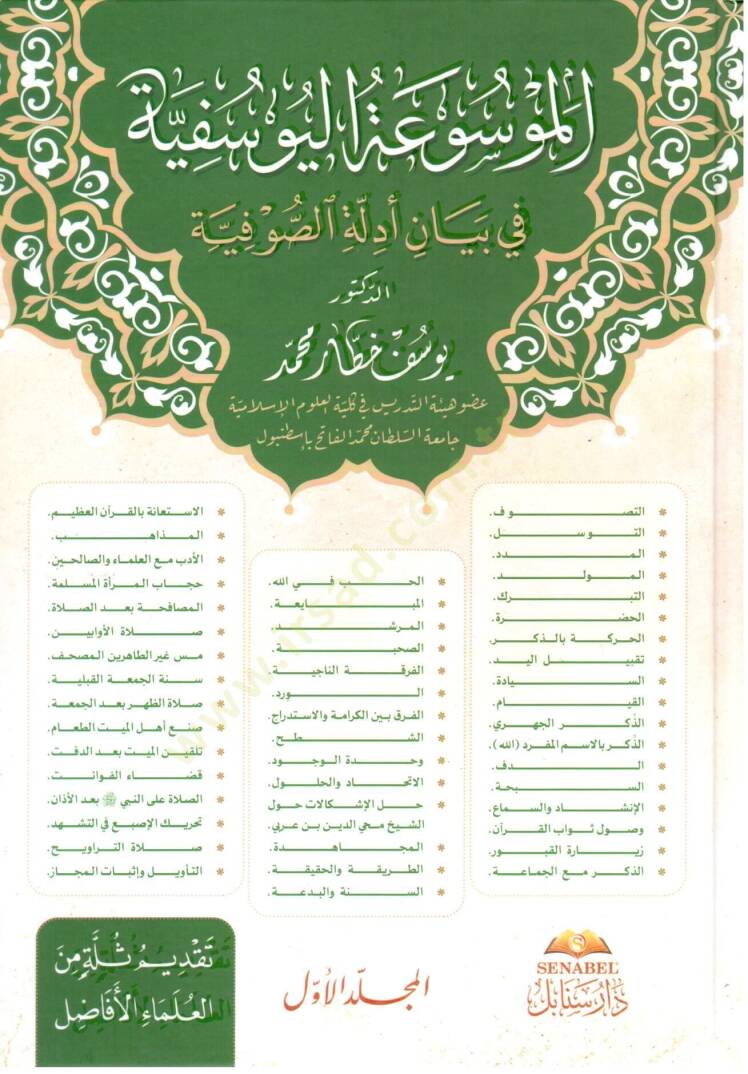 المَوْسُوعَةُ اليُوسُفِيَّة
في بَيَانِ أَدِلَّةِ الصُّوْفِيَّةِ
الدكتور
يوسف خطار محمد
عضو هيئة التدريس في كلية العلوم الإسلامية
جامعة السلطان محمد الفاتح بإسطنبول
* التصوف.
* التوسل.
* المدد.
* المولد.
* التبرك.
* الحضرة.
* الحركة بالذكر.
* تقبيل اليد.
* السيادة.
* القيام.
* الذكر الجهري.
* الذكر بالاسم المفرد (الله).
* الدف.
* السبحة.
* الإنشاد والسماع.
* وصول ثواب القرآن.
* زيارة القبور.
* الذكر مع الجماعة.
* الحب في الله.
* المبايعة.
* المرشد.
* الصحبة.
* الفرقة الناجية.
* الورد.
* الفرق بين الكرامة والاستدراج.
* الشطح.
* وحدة الوجود.
* الاتحاد والحلول.
* حل الإشكالات حول
الشيخ محي الدين بن عربي.
* المجاهدة.
* الطريقة والحقيقة.
* السنة والبدعة.
* الاستعانة بالقرآن العظيم.
* المذاهب.
* الأدب مع العلماء والصالحين.
* حجاب المرأة المسلمة.
* المصافحة بعد الصلاة.
* صلاة الأوابين.
* مس غير الطاهرين المصحف.
* سنة الجمعة القبلية.
* صلاة الظهر بعد الجمعة.
* صنع أهل الميت الطعام.
* تلقين الميت بعد الدفن.
* قضاء الفوائت.
* الصلاة على النبي ﷺ بعد الأذان.
* تحريك الإصبع في التشهد.
* صلاة التراويح.
* التأويل وإثبات المجاز.
تَقْدِيمُ ثُلَّةٍ مِنَ
العُلَمَاءِ الأَفَاضِل
المجلد الأول
SENABEL
دار سنابل
www.irsad.com.tr